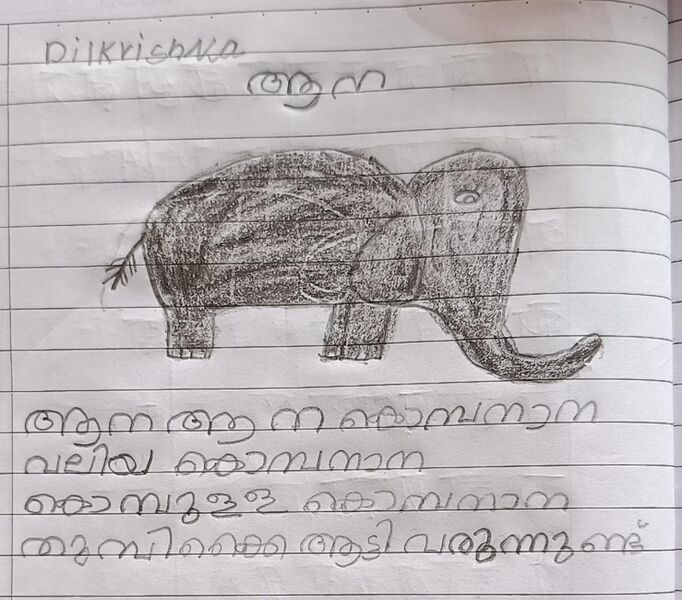 Dilkrishna
ആന
ആന ആന കൊമ്പനാന
വലിയ കൊമ്പനാന
കൊമ്പുള്ള കൊമ്പനാന
തുമ്പിക്കൈ ആട്ടി വരുന്നുണ്ട്